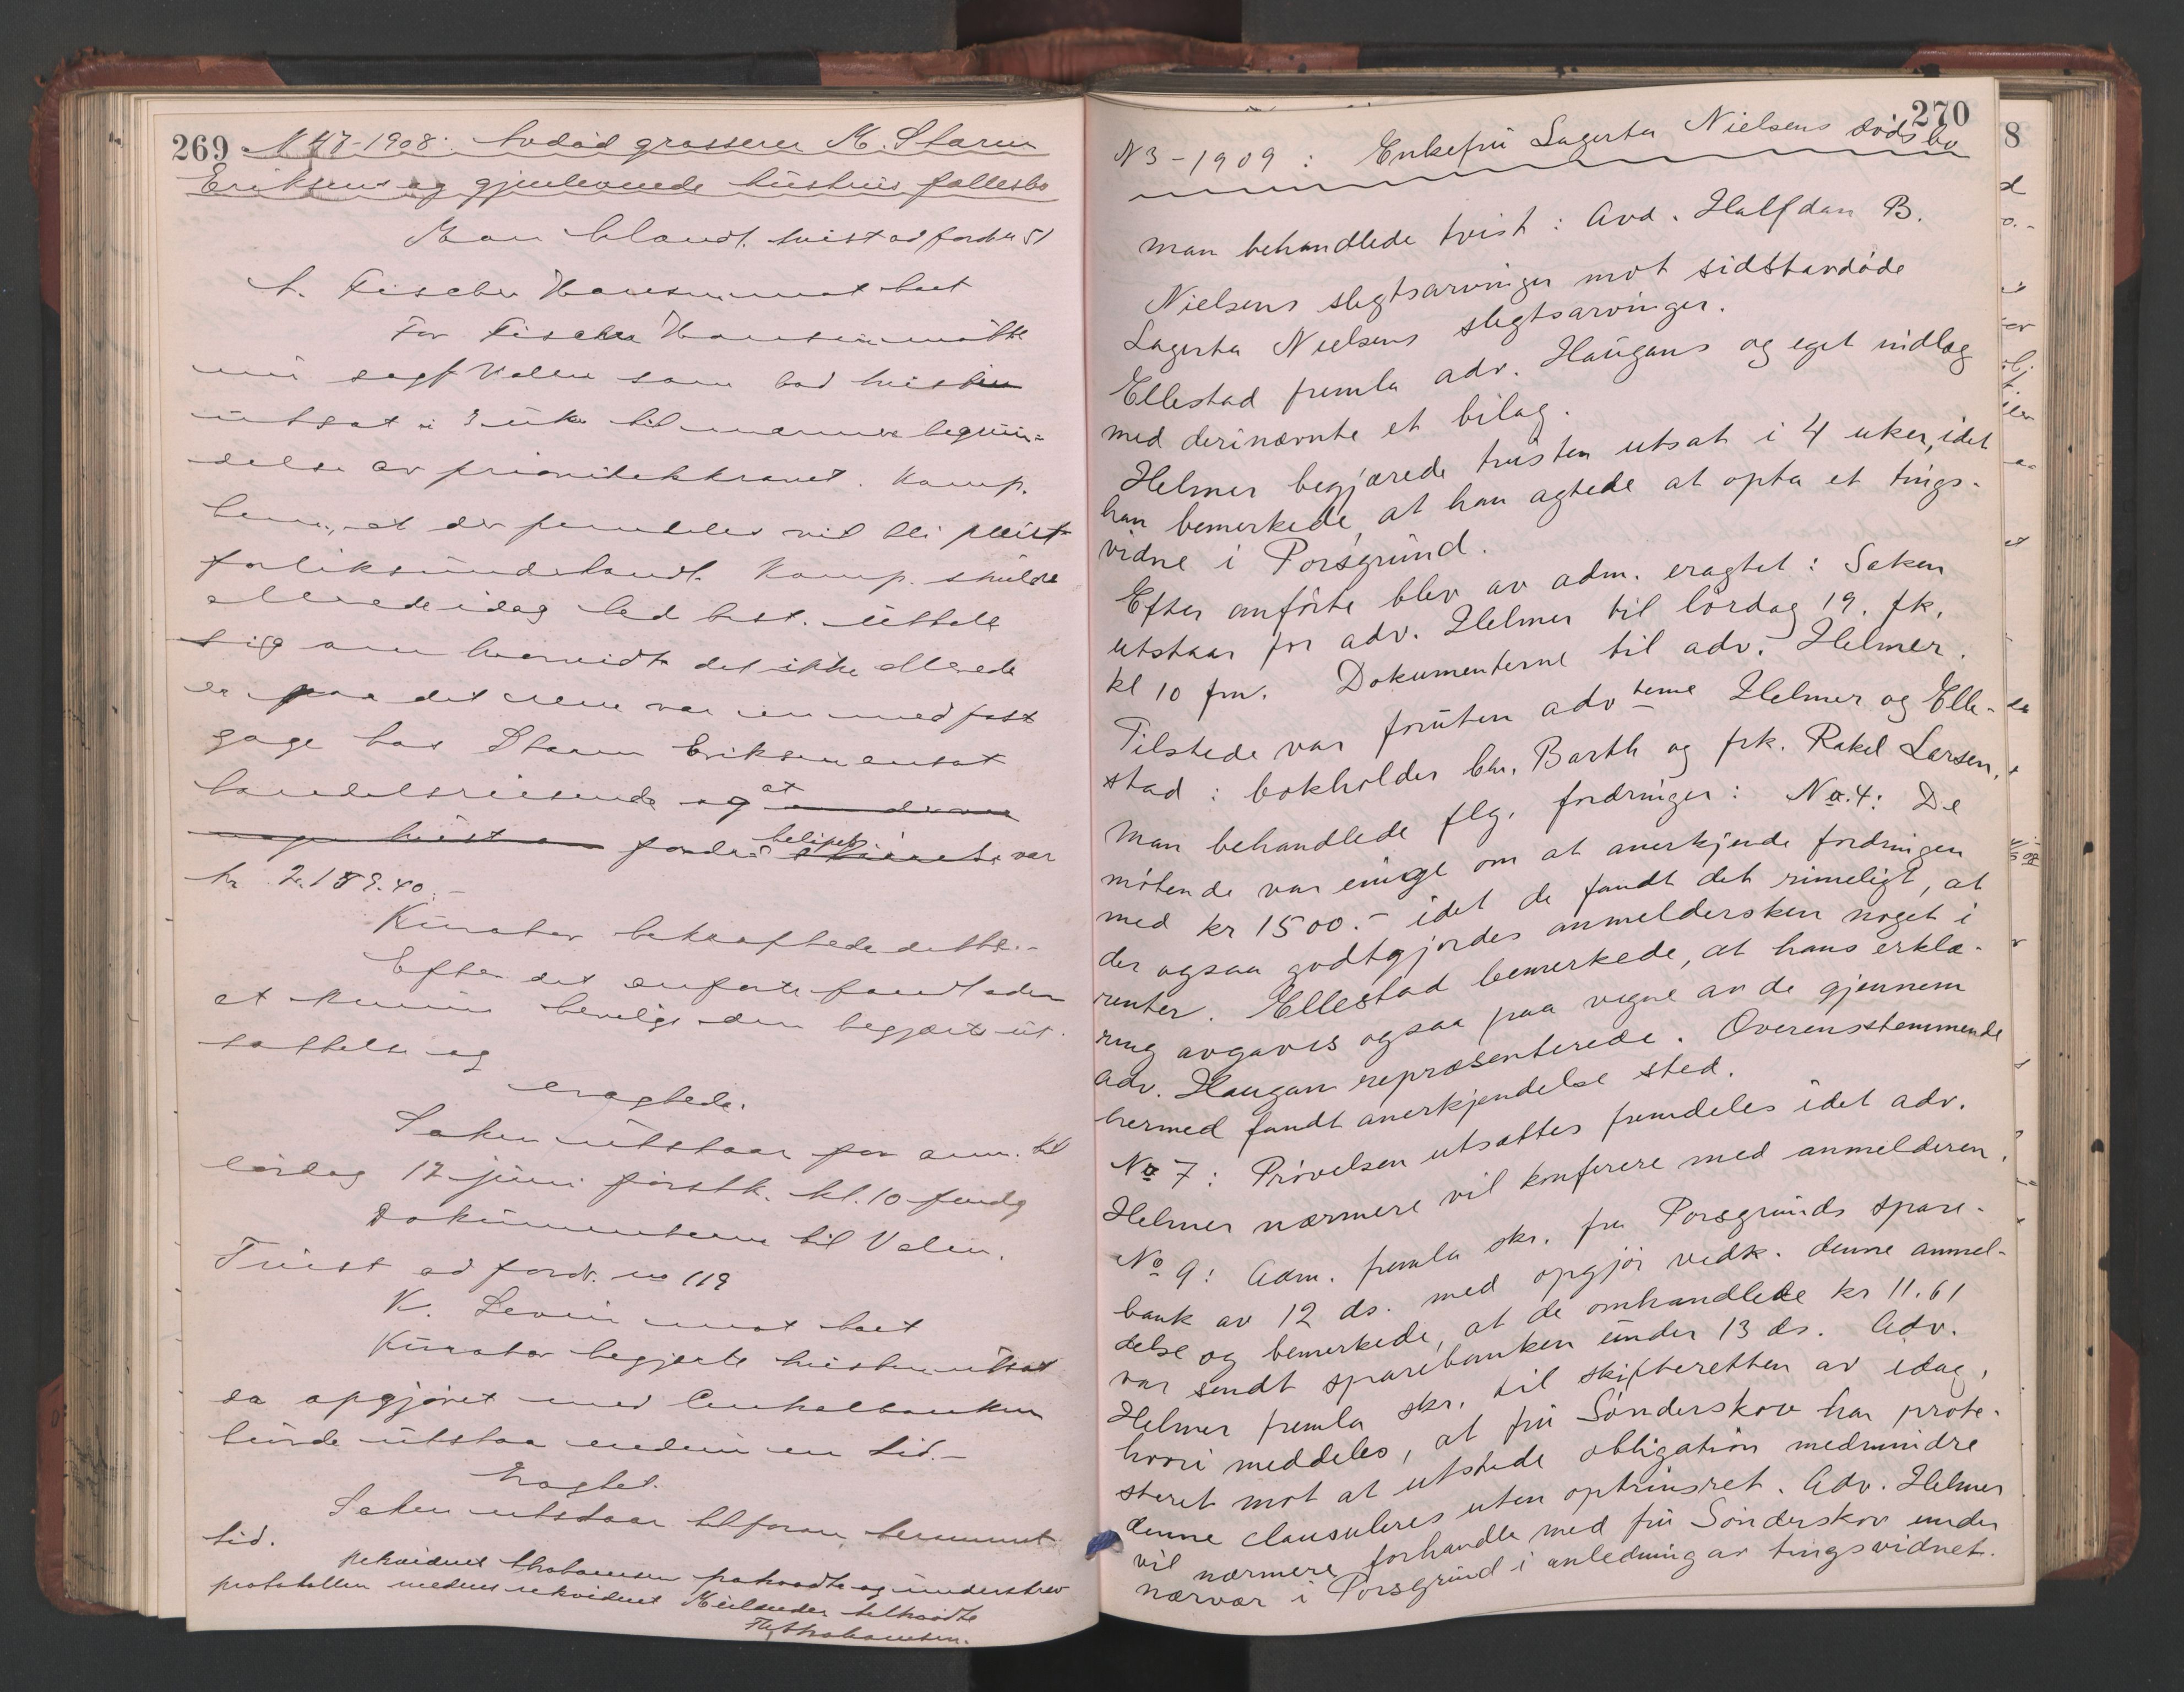 269
N 47-1908: Avdød grosserer M. Starm
Eriksens og gjenlevende hustrus fællesbo
Man behandl. tvist ad fordr. 51
A. Fischer Hansen mot boet
For Fischer Hansen mötte
nu sagf. Valen som bad tvisten
utsat i 3 uker til nærmere begrun-
delse av prioritetskravet. Komp.
bem., at der fremdeles vil bli
forliksunderhandl. Komp. skulde
allerede idag bed best. uttale
sig om hvorvidt det ikke allerede
er paa det rene var en med fast
gage hos Starm Eriksen ansat
handelsreisende og at
fordr.s beløp var
kr 2.189.40.-
Kurator bekræftede dette.-
Efter det anførte fandt adm
at kunne bevilge den begjærte ut-
sættelse og
eragtede.
Saken utstaar for anm. til
lørdag 12 juni førstk. kl. 10 fmdg
Dokumenterne til Valen.
Tvist ad fordr. no 119
K. Levin mot boet
Kurator begjærte tvisten utsat
da opgjöret med Centralbanken
burde utstaa endnu en tid.-
Eragtet.
Saken utstaar til foran berammet
tid.
protokollen medens rekvident tilhørdte
270
N 3-1909: Enkefru Lagerta Nielsens dödsbo
Man behandlede tvist: Avd. Halfdan B.
Nielsens slegtsarvinger mot sidstavdöde
Lagerta Nielsens slegtsarvinger.
Ellestad fremla adv. Haugans og eget indlæg
med derinævnte et bilag.
Helmer begjærede tvisten utsat i 4 uker, idet
han bemerkede, at han agtede at opta et tings-
vidne i Porsgrund.
Efter anförte blev av adm. eragtet: Saken
utstaar for adv. Helmer til lördag 19. fk.
kl 10 fm. Dokumenterne til adv. Helmer.
Tilstede var foruten advterne Helmer og Elle-
stad: bokholder Chr. Barth og frk. Rakel Larsen.
Man behandlede flg. fordringer: No. 4: De
mötende var enige om at anerkjende fordringen
med kr 1500.- idet de fandt det rimeligt, at
der ogsaa godtgjordes anmeldersken noget i
renter. Ellestad bemerkede, at hans erklæ-
ring avgaves ogsaa paa vegne av de gjennem
adv. Haugan repræsenterede. Overensstemmende
hermed fandt anerkjendelse sted.
No 7: Prövelsen utsættes fremdeles idet adv.
Helmer nærmere vil konferere med anmelderen.
No 9: Adm. fremla skr. fra Porsgrunds spare-
bank av 12 ds. med opgjör vedk. denne anmel-
delse og bemerkede, at de omhandlede kr 11.61
var sendt sparebanken under 13 ds. Adv.
Helmer fremla skr. til skifteretten av idag,
hvori meddeles, at fru Sönderskov har prote-
steret mot at utstede obligation medmindre
denne clausuleres uten optrinsret. Adv. Helmer
vil nærmere forhandle med fru Sönderskov under
nærvær i Porsgrund i anledning av tingsvidnet.
8